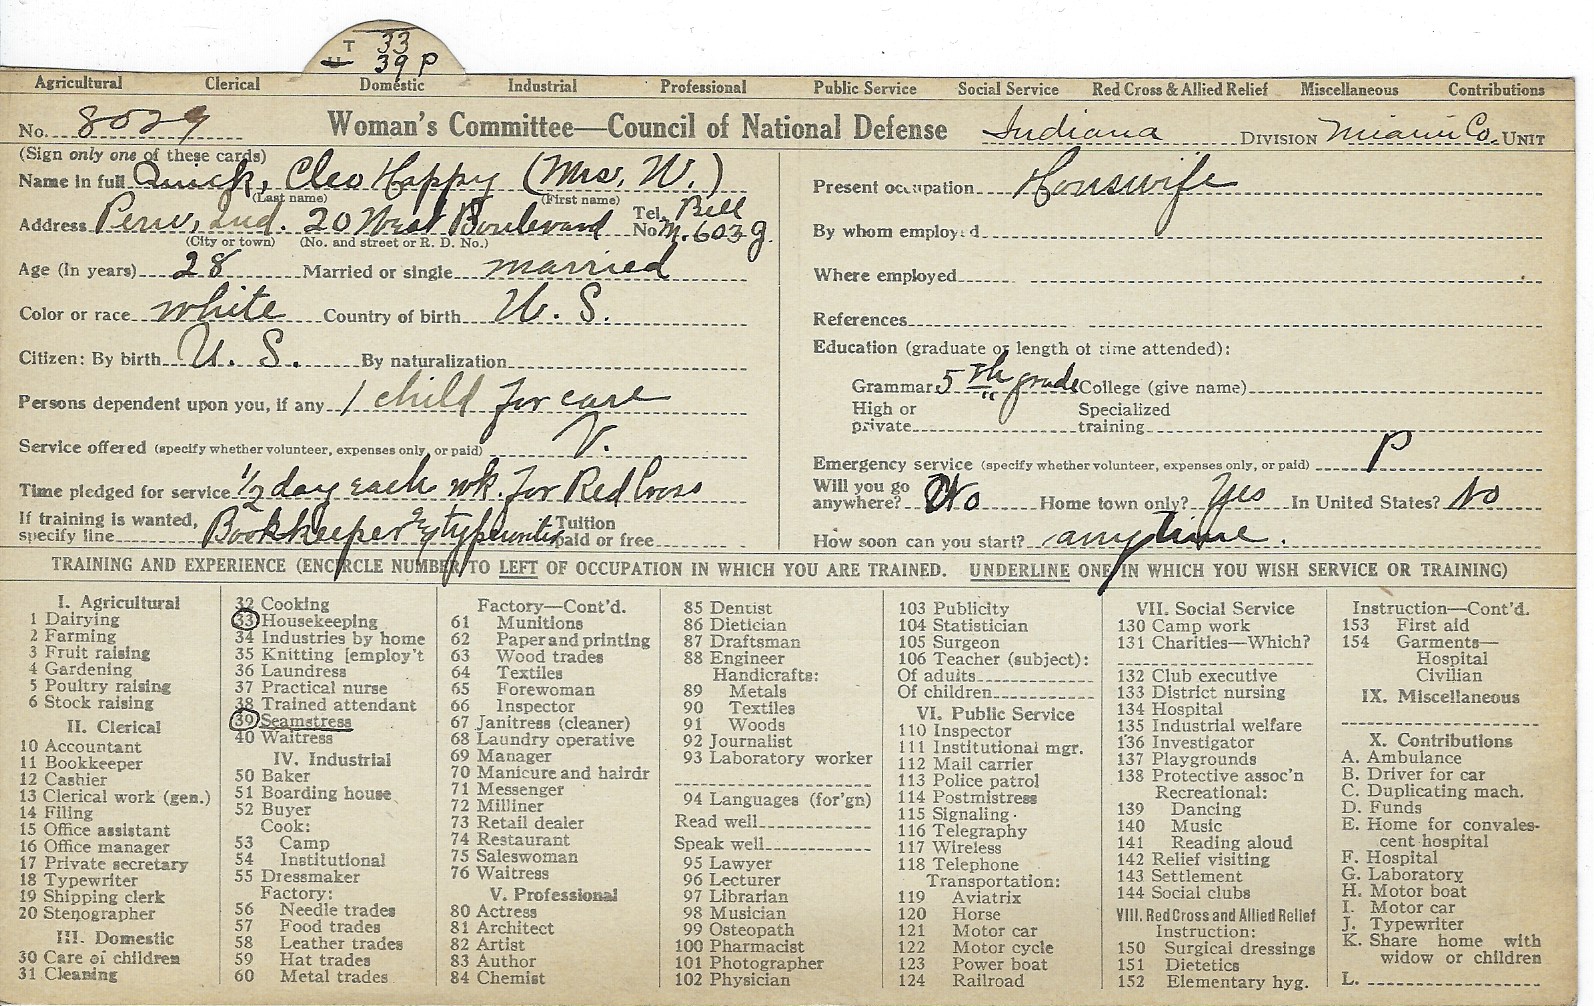 T 33
U 39 P
Agricultural Clerical Domestic Industrial Professional Public Service Social Service Red Cross & Allied Relief Miscellaneous Contributions
No. 8029 Woman's Committee—Council of National Defense Indiana DIVISION Miami Co. UNIT
(Sign only one of these cards)
Name in full Quick, Cleo Happy (Mrs. W.)
(Last name) (First name)
Address Peru, Ind. 20 West Boulevard Tel. No. Bell M. 603 J.
(City or town) (No. and street or R. D. No.)
Age (In years) 28 Married or single married
Color or race white Country of birth U. S.
Citizen: By birth U. S. By naturalization
Persons dependent upon you, if any 1 child for care
Service offered (specify whether volunteer, expenses only, or paid) V.
Time pledged for service 1/2 day each wk. for Red Cross
If training is wanted, specify line Bookkeeper & typewriter Tuition paid or free
Present occupation Houswife
By whom employed
Where employed
References
Education (graduate or length of time attended):
Grammar 5th grade College (give name)
High or private Specialized training
Emergency service (specify whether volunteer, expenses only, or paid) P
Will you go anywhere? No Home town only? Yes In United States? No
How soon can you start? anytime.
TRAINING AND EXPERIENCE (ENCIRCLE NUMBER TO LEFT OF OCCUPATION IN WHICH YOU ARE TRAINED. UNDERLINE ONE IN WHICH YOU WISH SERVICE OR TRAINING)
I. Agricultural
1 Dairying
2 Farming
3 Fruit raising
4 Gardening
5 Poultry raising
6 Stock raising
II. Clerical
10 Accountant
11 Bookkeeper
12 Cashier
13 Clerical work (gen.)
14 Filing
15 Office assistant
16 Office manager
17 Private secretary
18 Typewriter
19 Shipping clerk
20 Stenographer
III. Domestic
30 Care of children
31 Cleaning
32 Cooking
33 Housekeeping
34 Industries by home
35 Knitting [employ't
36 Laundress
37 Practical nurse
38 Trained attendant
39 Seamstress
40 Waitress
IV. Industrial
50 Baker
51 Boarding house
52 Buyer
Cook:
53 Camp
54 Institutional
55 Dressmaker
Factory:
56 Needle trades
57 Food trades
58 Leather trades
59 Hat trades
60 Metal trades
Factory—Cont'd.
61 Munitions
62 Paper and printing
63 Wood trades
64 Textiles
65 Forewoman
66 Inspector
67 Janitress (cleaner)
68 Laundry operative
69 Manager
70 Manicure and hairdr
71 Messenger
72 Milliner
73 Retail dealer
74 Restaurant
75 Saleswoman
76 Waitress
V. Professional
80 Actress
81 Architect
82 Artist
83 Author
84 Chemist
85 Dentist
86 Dietician
87 Draftsman
88 Engineer
Handicrafts:
89 Metals
90 Textiles
91 Woods
92 Journalist
93 Laboratory worker
94 Languages (for'gn)
Read well
Speak well
95 Lawyer
96 Lecturer
97 Librarian
98 Musician
99 Osteopath
100 Pharmacist
101 Photographer
102 Physician
103 Publicity
104 Statistician
105 Surgeon
106 Teacher (subject):
Of adults
Of children
VI. Public Service
110 Inspector
111 Institutional mgr.
112 Mail carrier
113 Police patrol
114 Postmistress
115 Signaling
116 Telegraphy
117 Wireless
118 Telephone
Transportation:
119 Aviatrix
120 Horse
121 Motor car
122 Motor cycle
123 Power boat
124 Railroad
VII. Social Service
130 Camp work
131 Charities—Which?
132 Club executive
133 District nursing
134 Hospital
135 Industrial welfare
136 Investigator
137 Playgrounds
138 Protective assoc'n
Recreational:
139 Dancing
140 Music
141 Reading aloud
142 Relief visiting
143 Settlement
144 Social clubs
VIII. Red Cross and Allied Relief
Instruction:
150 Surgical dressings
151 Dietetics
152 Elementary hyg.
Instruction—Cont'd.
153 First aid
154 Garments—
Hospital
Civilian
IX. Miscellaneous
X. Contributions
A. Ambulance
B. Driver for car
C. Duplicating mach.
D. Funds
E. Home for convales-
cent hospital
F. Hospital
G. Laboratory
H. Motor boat
I. Motor car
J. Typewriter
K. Share home with
widow or children
L.